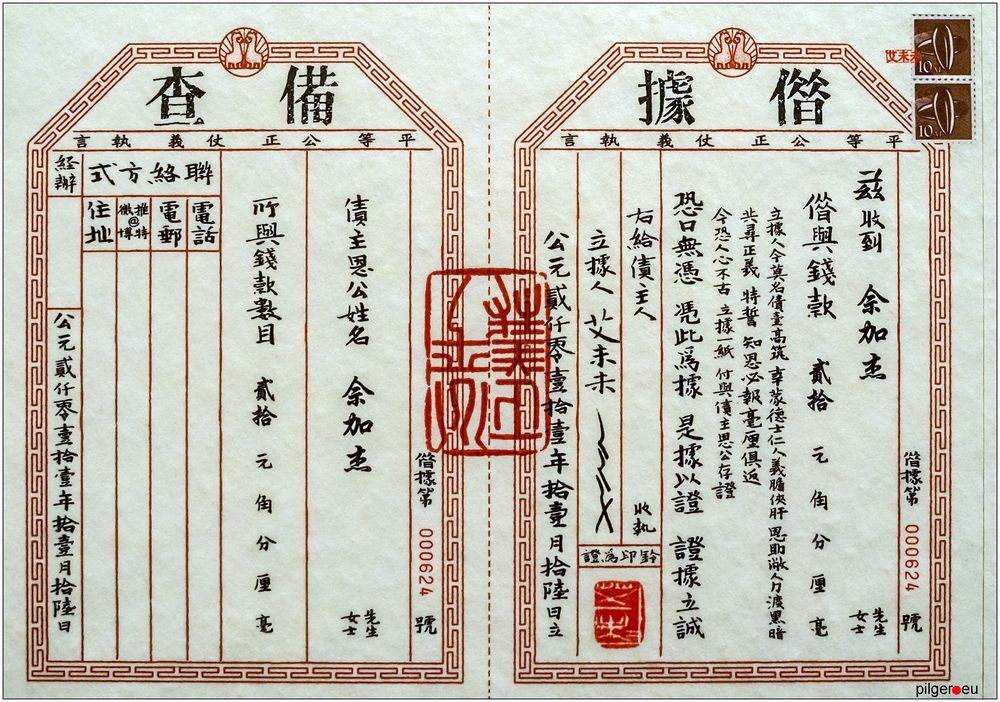 借據
平等公正仗義執言
借據第 000624 號
茲收到 余加杰 先生 女士
借與錢款 貳拾 元 角 分 厘 毫
立據人今莫名債臺高筑 幸蒙德士仁人義膽俠肝 恩助敝人力渡黑暗
共尋正義 特誓 知恩必報毫厘俱返
今恐人心不古 立據一紙 付與債主恩公存證
恐口無憑 憑此為據 是據以證 證據立誠
右給債主人 收執
立據人 艾未未
鈐印為證
公元貳仟零壹拾壹年拾壹月拾陸日立
艾未未
10
10
備查
平等公正仗義執言
借據第 000624 號
債主恩公姓名 余加杰 先生 女士
所與錢款數目 貳拾 元 角 分 厘 毫
聯絡方式
電話
電郵
推特@微博
住址
經辦
公元貳仟零壹拾壹年拾壹月拾陸日
pilger eu